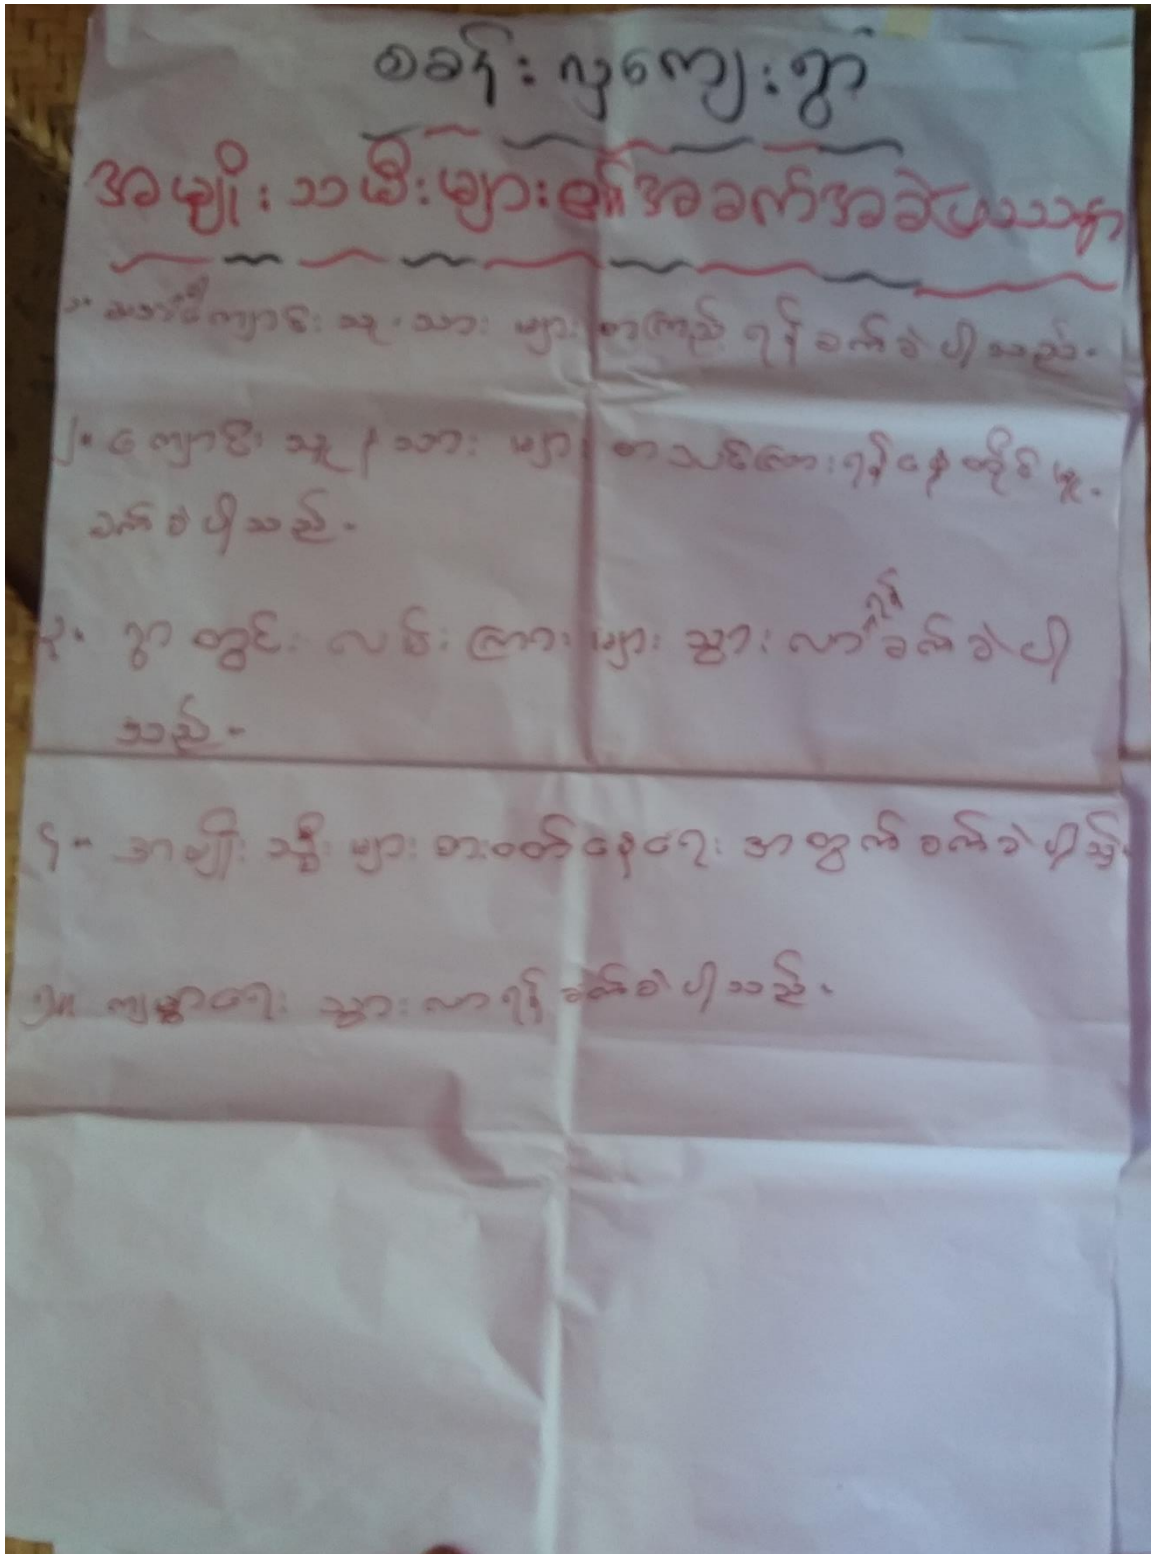 စခန်းလှကျေးရွာ
အမျိုးသမီးများ၏အခက်အခဲပြဿနာ
၁။ ကျောင်းသူ၊သားများ စာကြည့်ရန်ခက်ခဲပါသည်။
၂။ ကျောင်းသူ၊သားများ စာသင်ကြားရန်နေ့တိုင်း
ခက်ခဲပါသည်။
၃။ ရွာတွင်းလမ်းကြားများသွားလာရန်ခက်ခဲပါ
သည်။
၄။ အမျိုးသမီးများစားဝတ်နေရေးအတွက်ခက်ခဲပါသည်
၅။ ကျမ္မာရေးသွားလာရန်ခက်ခဲပါသည်။